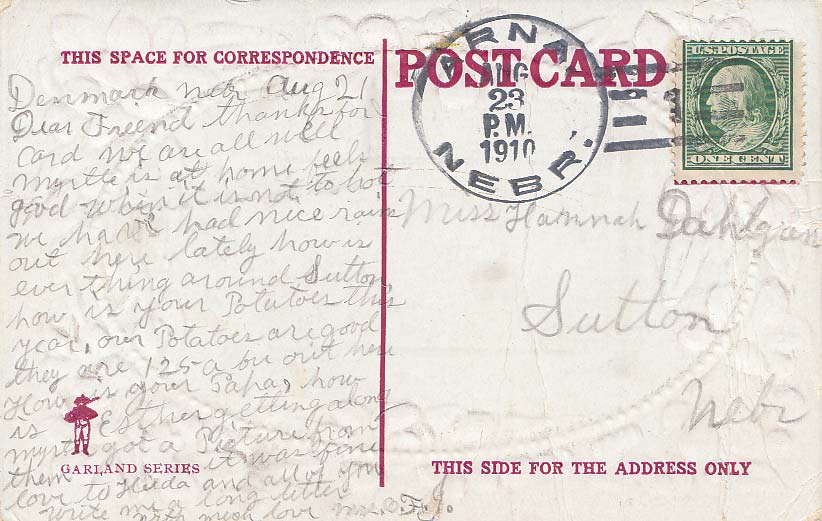 THIS SPACE FOR CORRESPONDENCE
POST CARD
ARNA
AUG
23
P.M.
1910
NEBR.
U.S. POSTAGE
ONE CENT
Denmark Nebr Aug 21
Dear Freend thanks for
Card we are all well
Myrtle is at home feels
good when it is not to hot
we have had nice rains
out here lately how is
ever thing around Sutton,
how is your Potatoes this
year, our Potatoes are good
they are 125 a bu out here
How is your Papa, how
is Esther getting along
myrtle got a Picture from
them it was fine
love to Hilda and all of you
write me a long letter
with much love Mrs. F. J.
Miss Hannah Dahlgren
Sutton
Nebr
GARLAND SERIES
THIS SIDE FOR THE ADDRESS ONLY